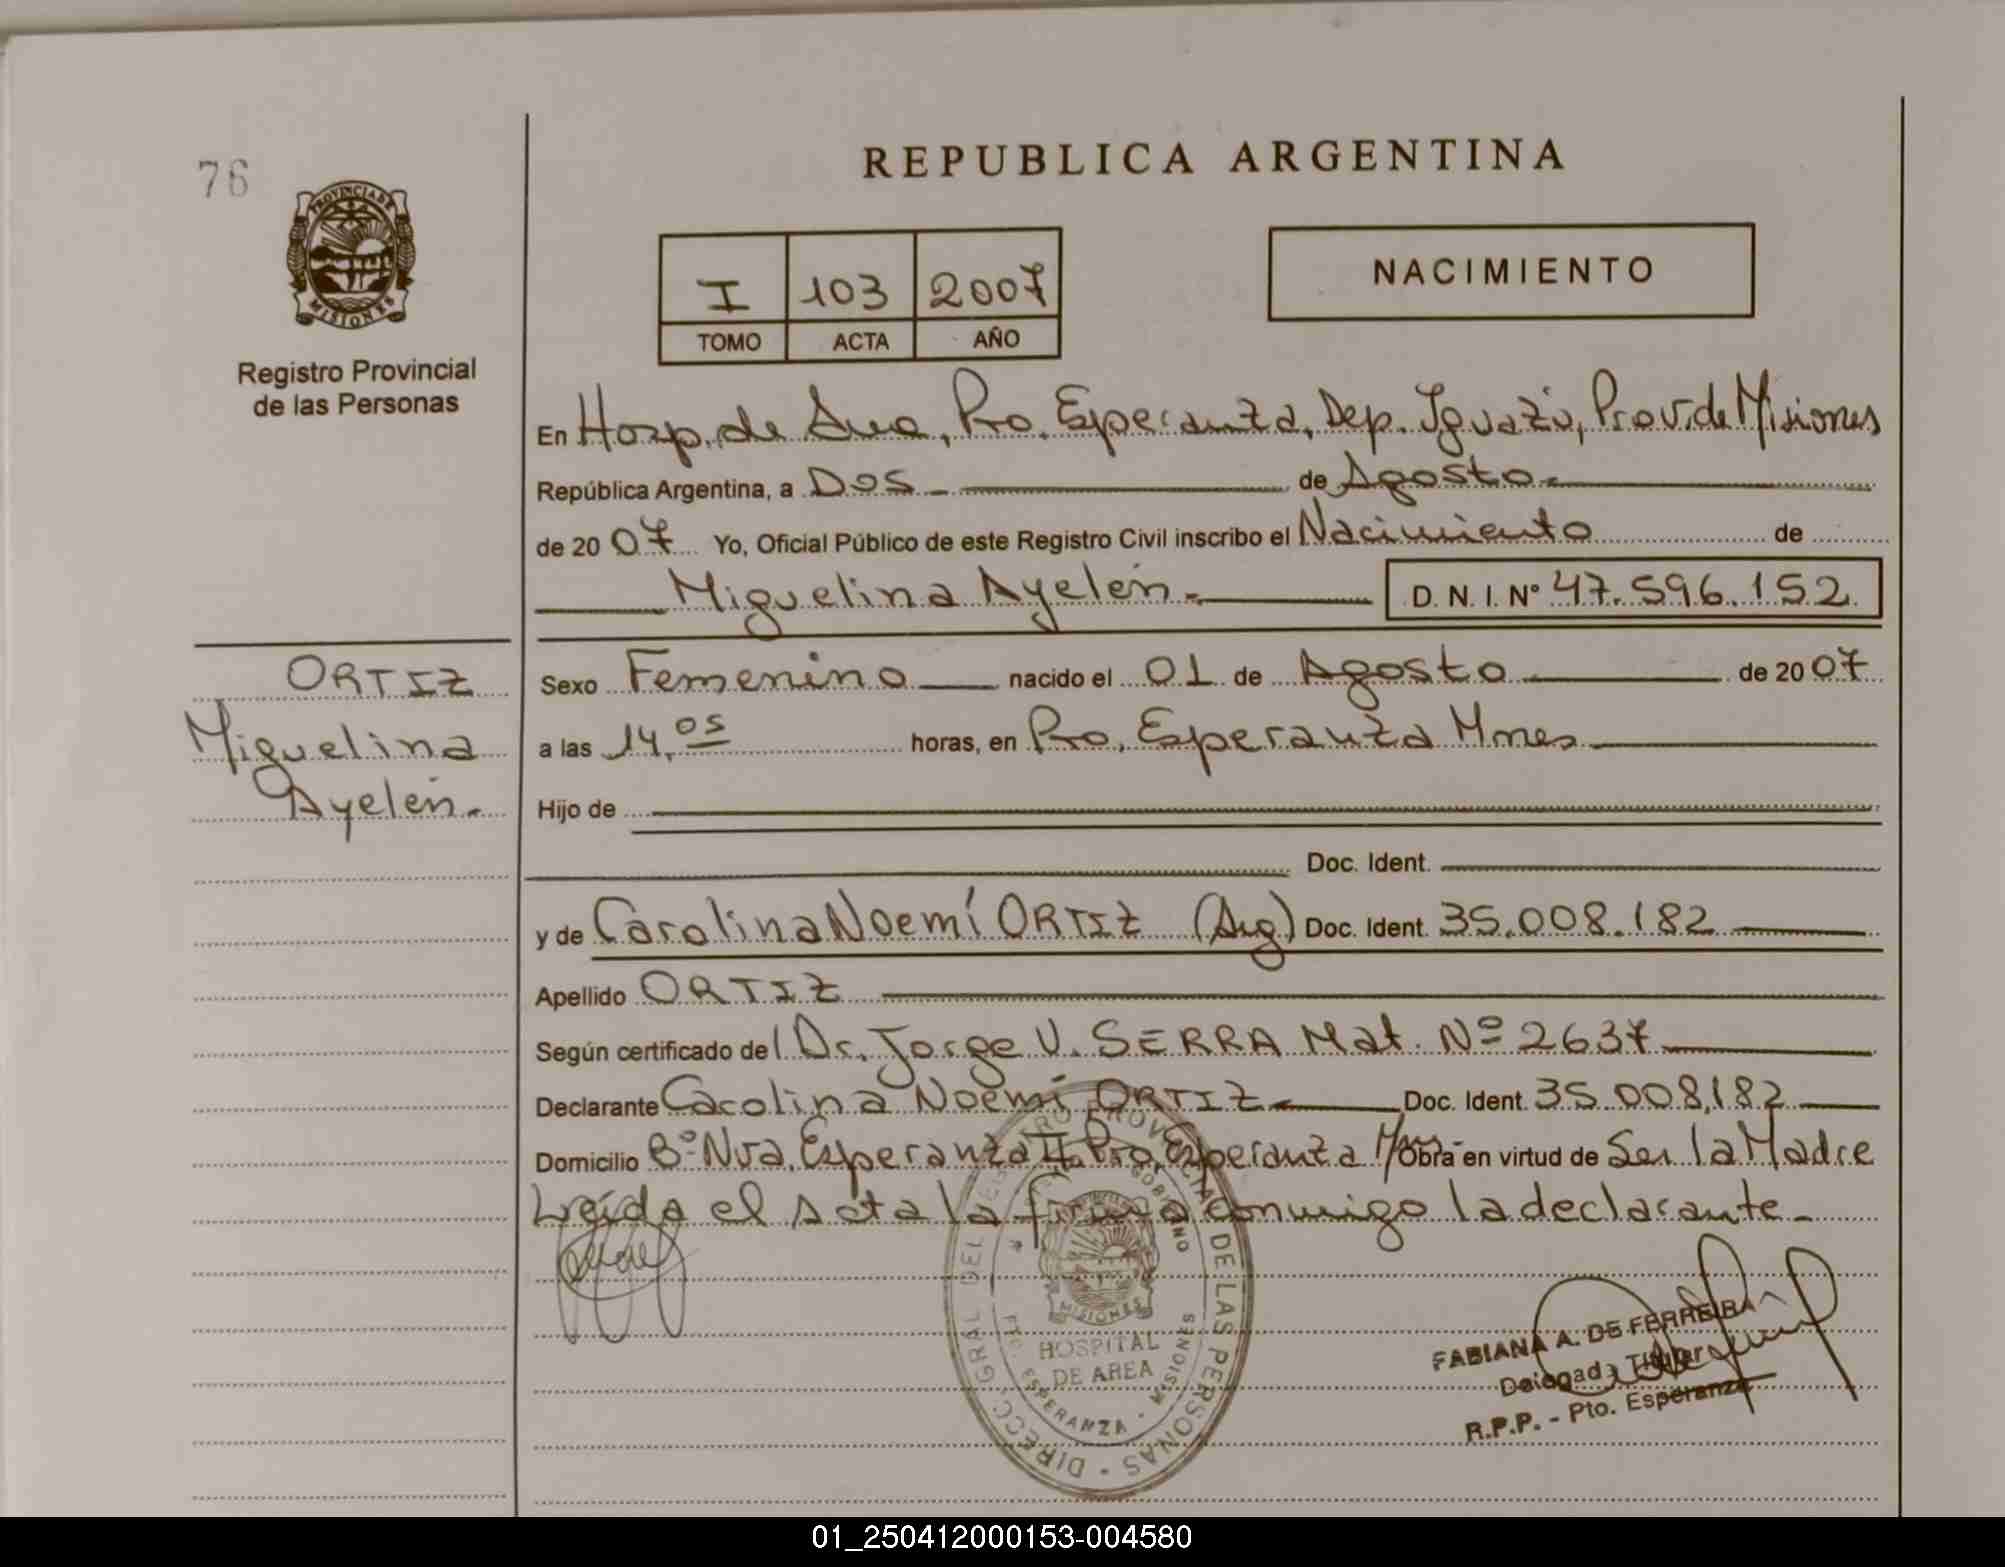 76
PROVINCIA DE
MISIONES
Registro Provincial
de las Personas
REPUBLICA ARGENTINA
I 103 2007
TOMO ACTA AÑO
NACIMIENTO
En Hosp. de Area, Pto. Esperanza, Dep. Iguazú, Prov. de Misiones
República Argentina, a Dos de Agosto
de 20 07 Yo, Oficial Público de este Registro Civil inscribo el Nacimiento de
Miguelina Ayelén D. N. I. Nº 47.596.152
ORTIZ
Miguelina
Ayelén.-
Sexo Femenino nacido el 01 de Agosto de 20 07
a las 14,05 horas, en Pto. Esperanza Mnes
Hijo de
Doc. Ident.
y de Carolina Noemí ORTIZ (Arg) Doc. Ident. 35.008.182
Apellido ORTIZ
Según certificado del Dr. Jorge V. SERRA Mat. Nº 2637
Declarante Carolina Noemí ORTIZ Doc. Ident. 35.008.182
Domicilio Bº Nva. Esperanza II Pto. Esperanza Obra en virtud de Ser la Madre
Leída el Acta la firma conmigo la declarante.-
DIRECC. GRAL. DEL REGISTRO PROVINCIAL DE LAS PERSONAS
GOBIERNO
MISIONES
HOSPITAL
DE AREA
PTO. ESPERANZA - MISIONES
FABIANA A. DE FERREIRA
Delegada Titular
R.P.P. - Pto. Esperanza
01_250412000153-004580